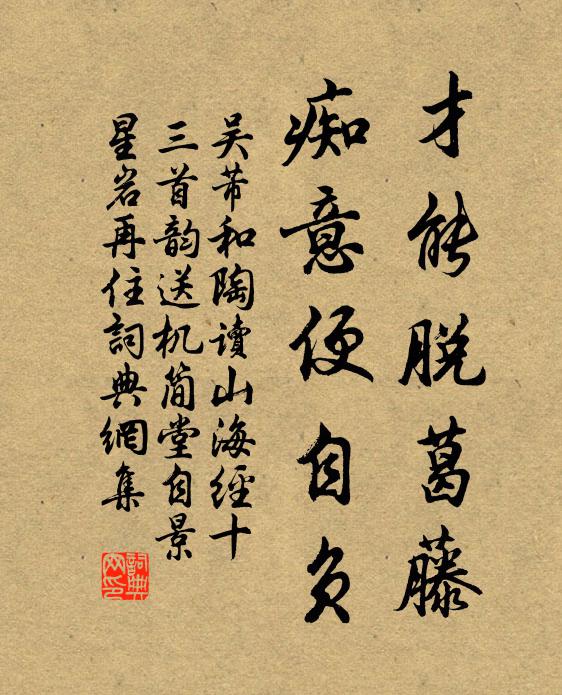 才能脱葛藤
痴意便自负
吴芾和陶读山海經十
三首韵送机简堂自景
星岩再住詞典網集
詞典网印